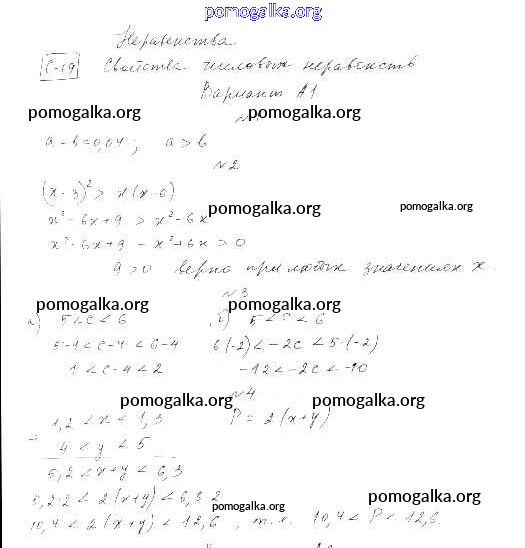 pomogalka.org
Неравенства
С-19 Свойства числовых неравенств
Вариант А1
pomogalka.org pomogalka.org
№1
a - b = 0,04; a > b
№2
(x - 3)² > x(x - 6)
pomogalka.org pomogalka.org
x² - 6x + 9 > x² - 6x
x² - 6x + 9 - x² + 6x > 0
9 > 0 верно при любых значениях x.
№3
pomogalka.org pomogalka.org
а) 5 < c < 6 б) 5 < c < 6
5-4 < c-4 < 6-4 6·(-2) < -2c < 5·(-2)
1 < c-4 < 2 -12 < -2c < -10
№4
pomogalka.org pomogalka.org
1,2 < x < 1,3 P = 2(x+y)
4 < y < 5
5,2 < x+y < 6,3
5,2·2 < 2(x+y) < 6,3·2
pomogalka.org pomogalka.org
10,4 < 2(x+y) < 12,6, т.е. 10,4 < P < 12,6.